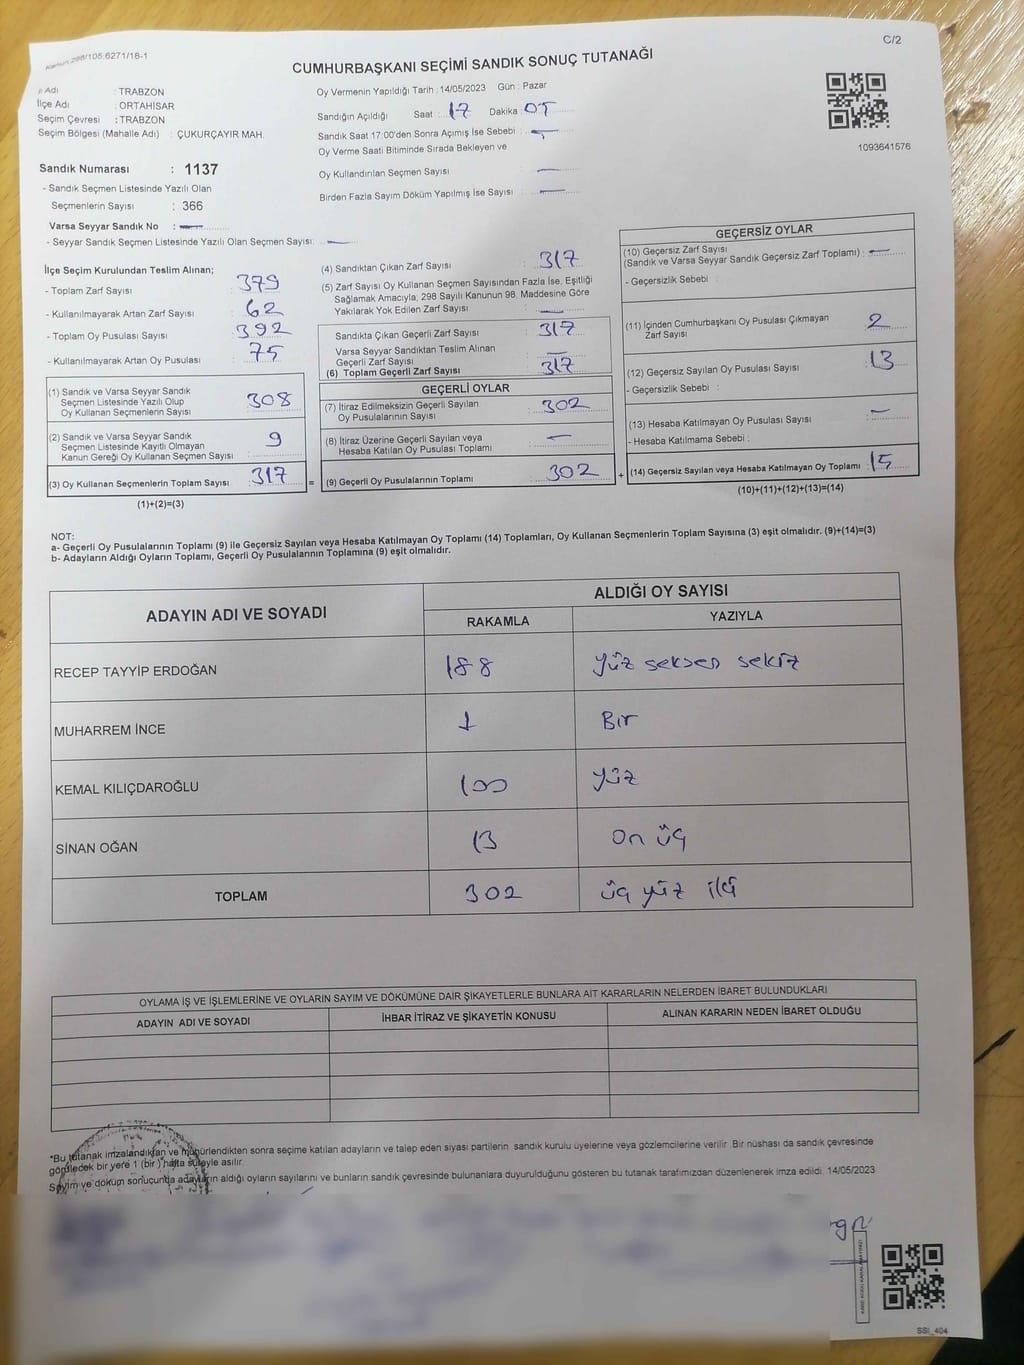 Kanun:298/105:6271/18-1
C/2
CUMHURBAŞKANI SEÇİMİ SANDIK SONUÇ TUTANAĞI
Adı : TRABZON
İlçe Adı : ORTAHİSAR
Seçim Çevresi : TRABZON
Seçim Bölgesi (Mahalle Adı) : ÇUKURÇAYIR MAH.
Oy Vermenin Yapıldığı Tarih : 14/05/2023 Gün : Pazar
Sandığın Açıldığı Saat : 17 Dakika 05
Sandık Saat 17:00'den Sonra Açımış İse Sebebi :
Oy Verme Saati Bitiminde Sırada Bekleyen ve
Oy Kullandırılan Seçmen Sayısı :
Birden Fazla Sayım Döküm Yapılmış İse Sayısı :
1093641576
Sandık Numarası : 1137
- Sandık Seçmen Listesinde Yazılı Olan
Seçmenlerin Sayısı : 366
Varsa Seyyar Sandık No :
- Seyyar Sandık Seçmen Listesinde Yazılı Olan Seçmen Sayısı:
İlçe Seçim Kurulundan Teslim Alınan;
- Toplam Zarf Sayısı : 379
- Kullanılmayarak Artan Zarf Sayısı : 62
- Toplam Oy Pusulası Sayısı : 392
- Kullanılmayarak Artan Oy Pusulası : 75
(1) Sandık ve Varsa Seyyar Sandık
Seçmen Listesinde Yazılı Olup
Oy Kullanan Seçmenlerin Sayısı : 308
(2) Sandık ve Varsa Seyyar Sandık
Seçmen Listesinde Kayıtlı Olmayan
Kanun Gereği Oy Kullanan Seçmen Sayısı : 9
(3) Oy Kullanan Seçmenlerin Toplam Sayısı : 317 =
(1)+(2)=(3)
(4) Sandıktan Çıkan Zarf Sayısı : 317
(5) Zarf Sayısı Oy Kullanan Seçmen Sayısından Fazla İse, Eşitliği
Sağlamak Amacıyla, 298 Sayılı Kanunun 98. Maddesine Göre
Yakılarak Yok Edilen Zarf Sayısı :
Sandıkta Çıkan Geçerli Zarf Sayısı : 317
Varsa Seyyar Sandıktan Teslim Alınan
Geçerli Zarf Sayısı :
(6) Toplam Geçerli Zarf Sayısı : 317
GEÇERLİ OYLAR
(7) İtiraz Edilmeksizin Geçerli Sayılan
Oy Pusulalarının Sayısı : 302
(8) İtiraz Üzerine Geçerli Sayılan veya
Hesaba Katılan Oy Pusulası Toplamı :
(9) Geçerli Oy Pusulalarının Toplamı : 302 +
GEÇERSİZ OYLAR
(10) Geçersiz Zarf Sayısı
(Sandık ve Varsa Seyyar Sandık Geçersiz Zarf Toplamı) :
- Geçersizlik Sebebi :
(11) İçinden Cumhurbaşkanı Oy Pusulası Çıkmayan
Zarf Sayısı : 2
(12) Geçersiz Sayılan Oy Pusulası Sayısı : 13
- Geçersizlik Sebebi :
(13) Hesaba Katılmayan Oy Pusulası Sayısı :
- Hesaba Katılmama Sebebi :
(14) Geçersiz Sayılan veya Hesaba Katılmayan Oy Toplamı : 15
(10)+(11)+(12)+(13)=(14)
NOT:
a- Geçerli Oy Pusulalarının Toplamı (9) ile Geçersiz Sayılan veya Hesaba Katılmayan Oy Toplamı (14) Toplamları, Oy Kullanan Seçmenlerin Toplam Sayısına (3) eşit olmalıdır. (9)+(14)=(3)
b- Adayların Aldığı Oyların Toplamı, Geçerli Oy Pusulalarının Toplamına (9) eşit olmalıdır.
ADAYIN ADI VE SOYADI ALDIĞI OY SAYISI
RAKAMLA YAZIYLA
RECEP TAYYİP ERDOĞAN 188 yüz seksen sekiz
MUHARREM İNCE 1 Bir
KEMAL KILIÇDAROĞLU 100 yüz
SİNAN OĞAN 13 on üç
TOPLAM 302 üç yüz iki
OYLAMA İŞ VE İŞLEMLERİNE VE OYLARIN SAYIM VE DÖKÜMÜNE DAİR ŞİKAYETLERLE BUNLARA AİT KARARLARIN NELERDEN İBARET BULUNDUKLARI
ADAYIN ADI VE SOYADI İHBAR İTİRAZ VE ŞİKAYETİN KONUSU ALINAN KARARIN NEDEN İBARET OLDUĞU
*Bu tutanak imzalandıktan ve mühürlendikten sonra seçime katılan adayların ve talep eden siyasi partilerin sandık kurulu üyelerine veya gözlemcilerine verilir. Bir nüshası da sandık çevresinde
görülecek bir yere 1 (bir) hafta süreyle asılır.
Sayım ve döküm sonucunda adayların aldığı oyların sayılarını ve bunların sandık çevresinde bulunanlara duyurulduğunu gösteren bu tutanak tarafımızdan düzenlenerek imza edildi. 14/05/2023
SSI_404